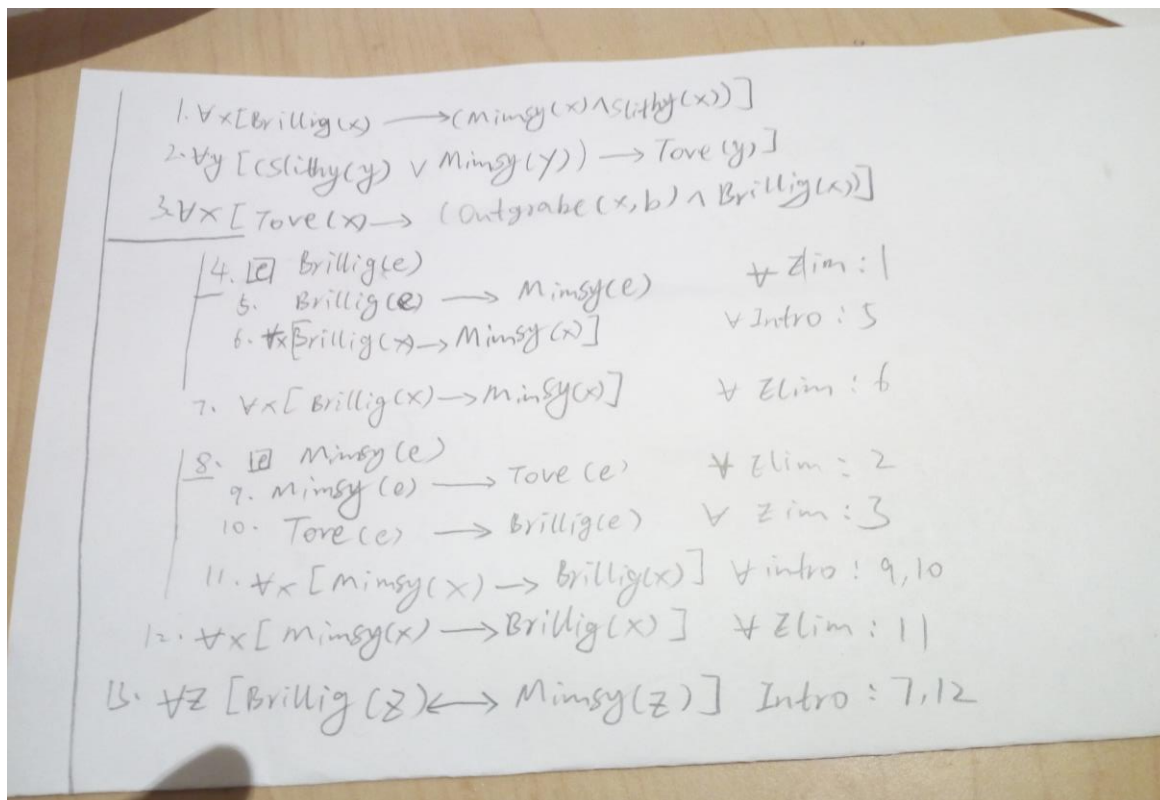 1. ∀x[Brillig(x) ⟶ (Mimsy(x) ∧ Slithy(x))]
2. ∀y [(Slithy(y) ∨ Mimsy(y)) ⟶ Tove(y)]
3. ∀x [Tove(x) ⟶ (Outgrabe(x,b) ∧ Brillig(x))]
4. [e] Brillig(e)
5. Brillig(e) ⟶ Mimsy(e) ∀ Elim : 1
6. ∀x[Brillig(x) ⟶ Mimsy(x)] ∀ Intro : 5
7. ∀x[Brillig(x) ⟶ Mimsy(x)] ∀ Elim : 6
8. [e] Mimsy(e)
9. Mimsy(e) ⟶ Tove(e) ∀ Elim : 2
10. Tove(e) ⟶ Brillig(e) ∀ Eim : 3
11. ∀x [Mimsy(x) ⟶ Brillig(x)] ∀ intro : 9,10
12. ∀x [Mimsy(x) ⟶ Brillig(x)] ∀ Elim : 11
13. ∀z [Brillig(z) ⟷ Mimsy(z)] Intro : 7,12